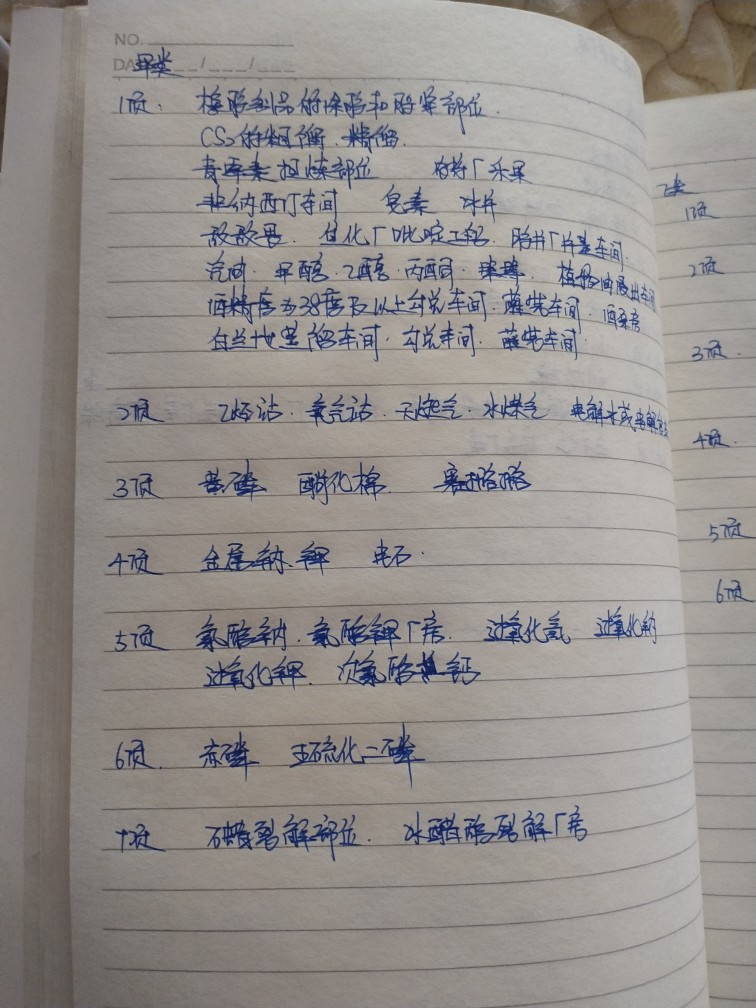 NO.
DA 甲类
1项: 橡胶制品的涂胶和胶浆部位.
CS₂的粗馏、精馏.
青霉素提炼部位 农药厂乐果
非纳西汀车间 皂素 冰片
敌敌畏. 白化厂吡啶工段. 胶片厂片基车间.
汽油. 甲醇. 乙醇. 丙酮. 植物油浸出车间
酒精度为38度及以上勾兑车间. 灌装车间. 酒泵房
白兰地蒸馏车间. 勾兑车间. 灌装车间.
2项 乙炔站. 氢气站. 天然气. 水煤气 电解水或电解食盐
3项 黄磷 硝化棉. 赛璐珞
4项 金属钠、钾 电石.
5项 氯酸钠. 氯酸钾厂房. 过氧化氢 过氧化钠
过氧化钾. 次氯酸钙
6项. 赤磷 五硫化二磷
7项 石蜡裂解部位. 冰醋酸裂解厂房
乙类
1项
2项
3项.
4项.
5项
6项.